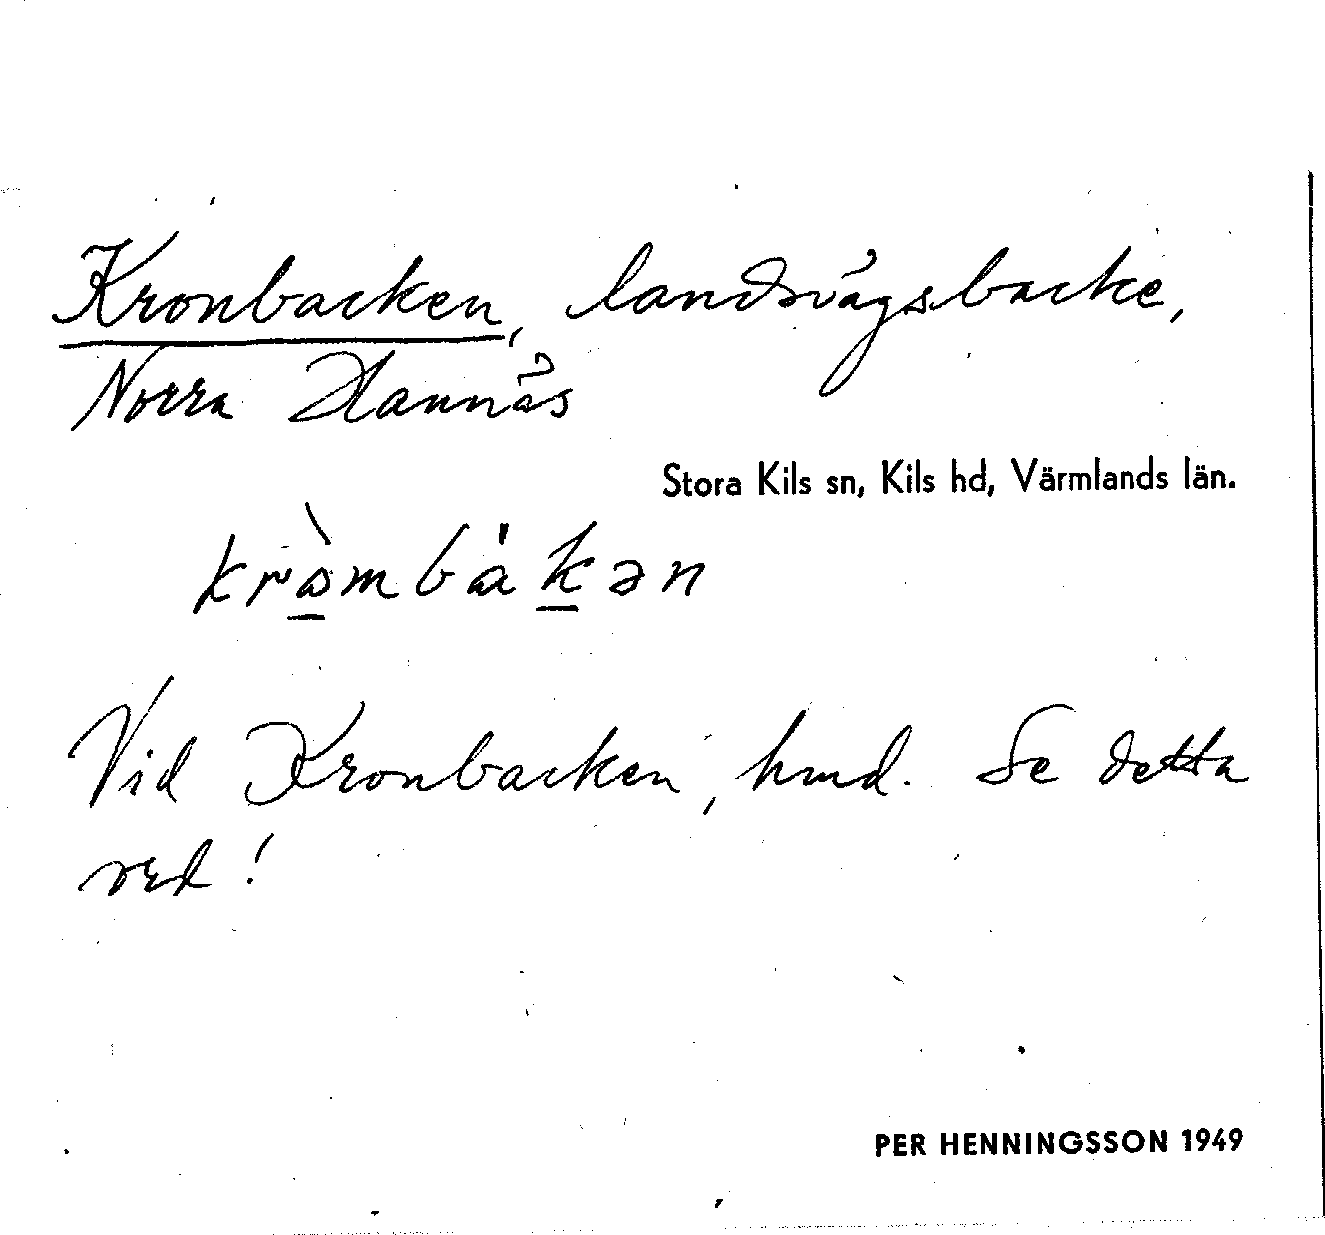 Kronbacken, landsvägsbacke,
Norra Hannäs
Stora Kils sn, Kils hd, Värmlands län.
krò̱mbáḵən
Vid Kronbacken, hmd. Se detta
ord!
PER HENNINGSSON 1949